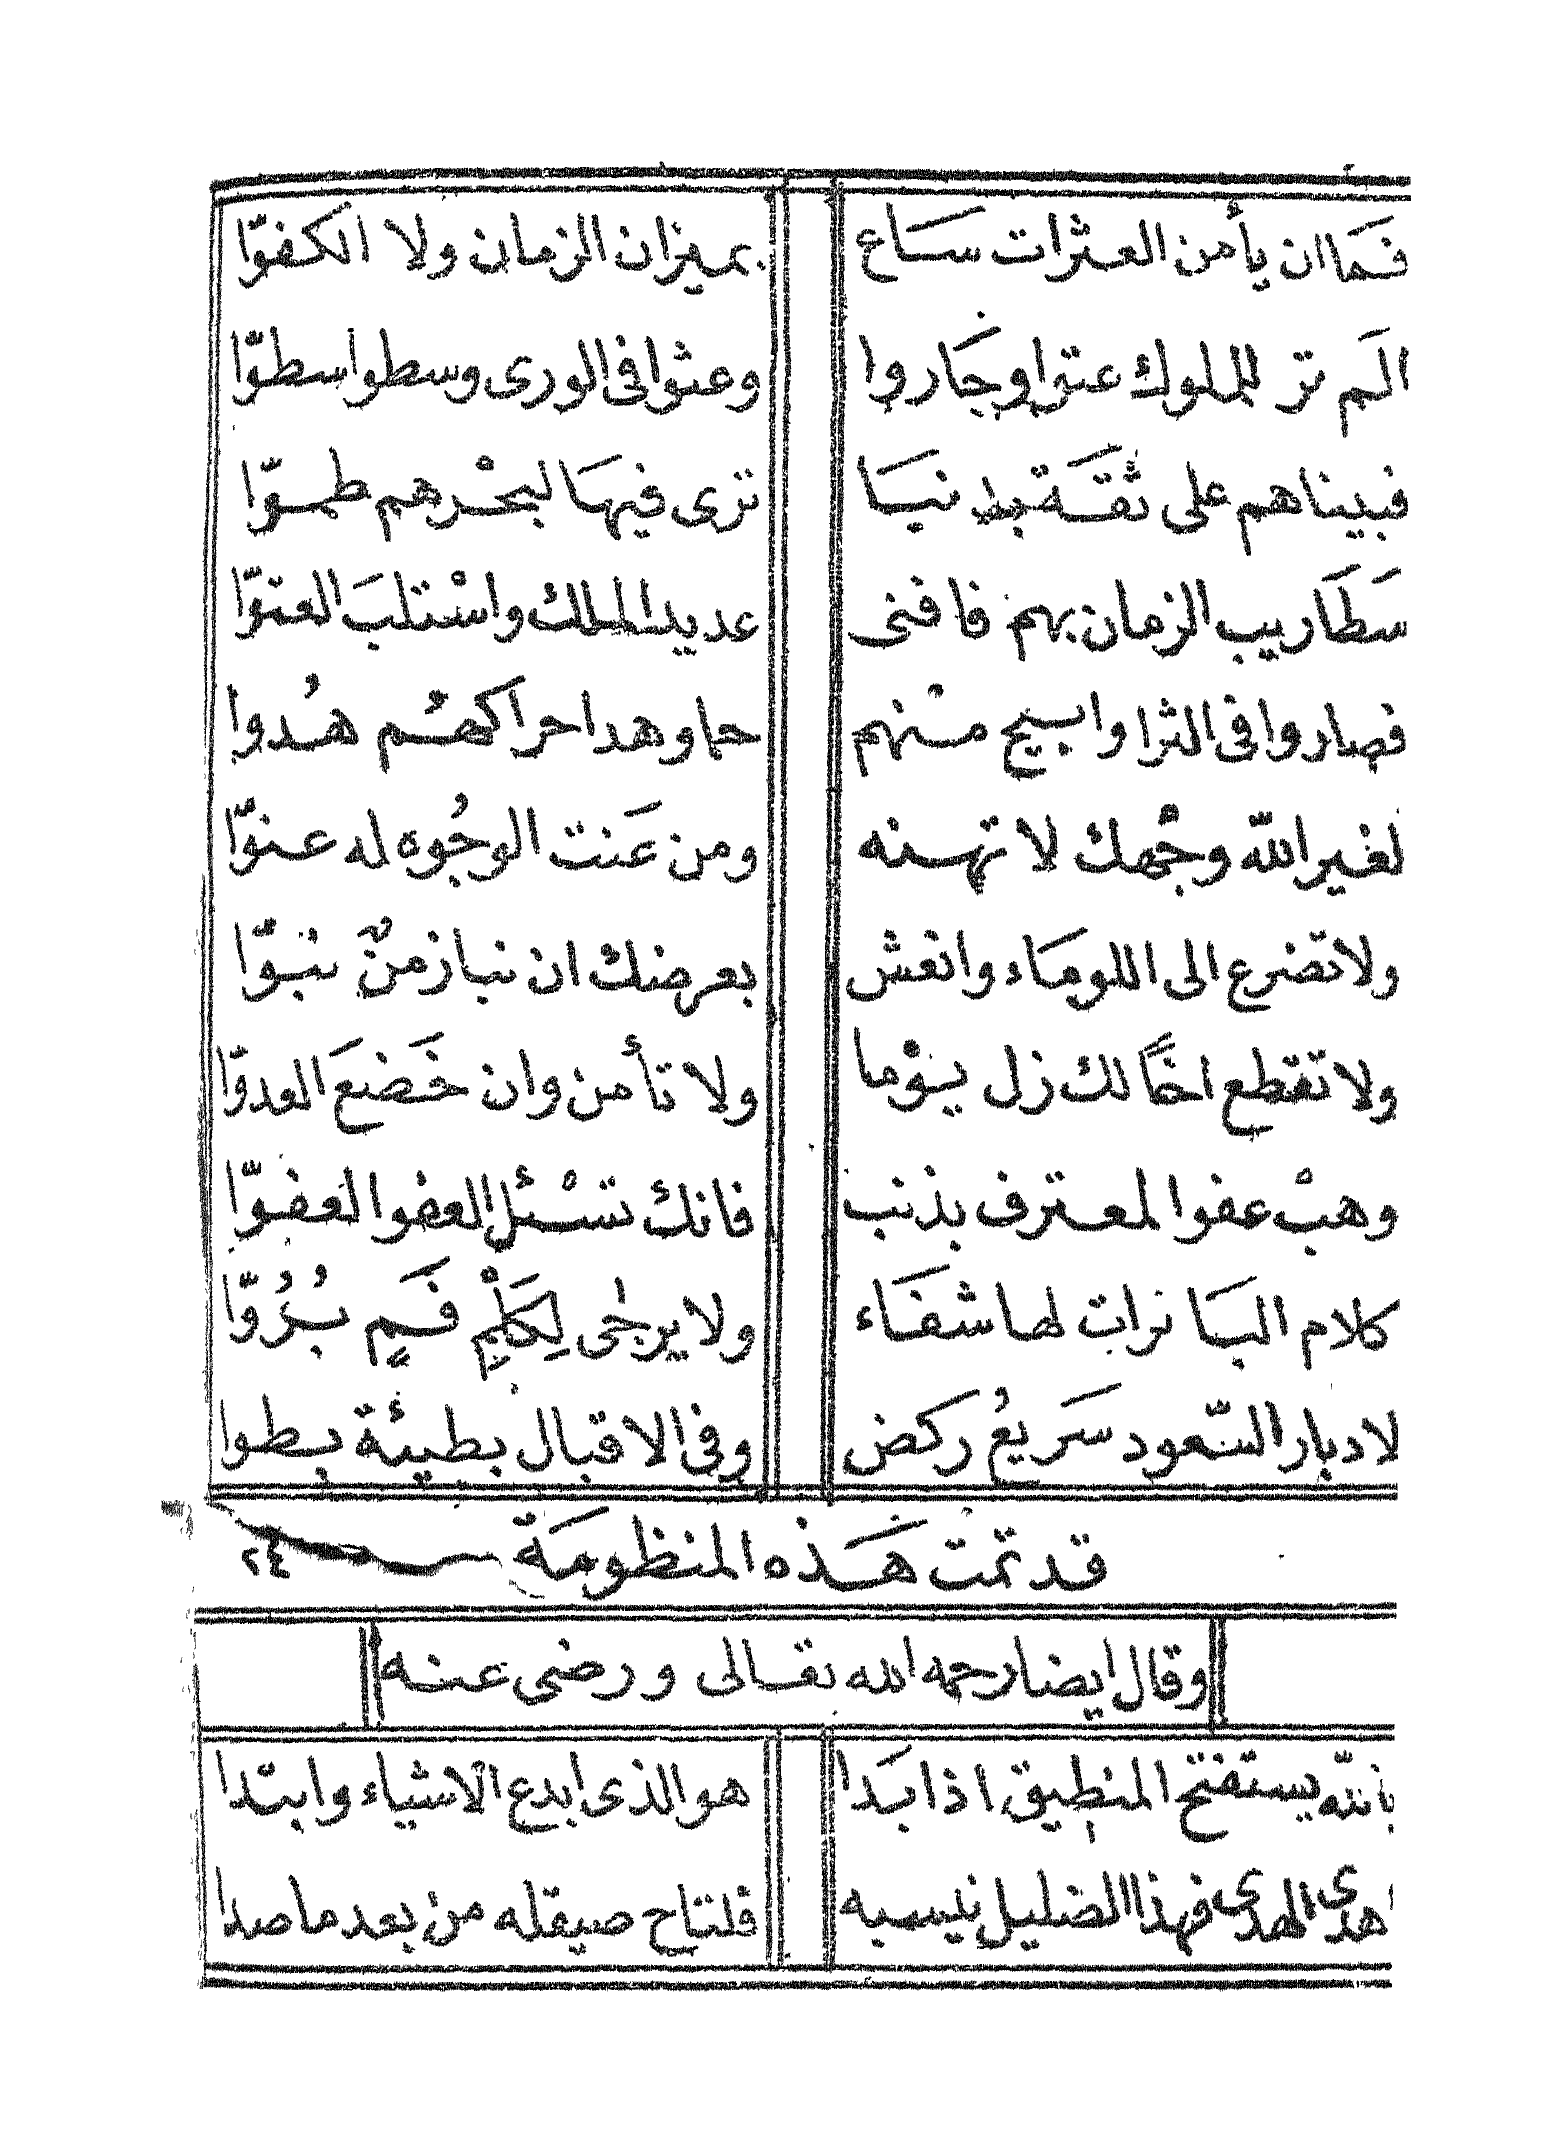 فَما ان يأمن العثرات سَاع بميزان الزمان ولا الكفوّا
الَم تر للملوك عتوا وجَاروا وعثوا فى الورى وسطوا سطوّا
فبيناهم على ثقَة بدنيَا ترى فيهَا لبحْرهم طموّا
سَطَا ريب الزمان بهم فافنى عديد الملك واسْتلبَ العتوّا
فصاروا فى الثرا وابيح منْهم حما وهدا حراكهُم هُدوا
لغير الله وجْهك لا تهنه ومن عَنت الوجُوه له عنوّا
ولا تضرع الى اللومَاء وانعش بعرضك ان نباز منٌ نبوّا
ولا تقطع اخًا لك زل يوْما ولا تأمن وان خَضعَ العدوّا
وهبْ عفوا لمعترف بذنب فانك تسْئل العفوا لعفوّا
كلام البَاترات لها شفَاء ولا يرجٰى لِكَلْمِ فَمٍ بُرُوّا
لادبار السّعود سَريعُ ركض وفى الاقبال بطيئة بطوا
قد تمت هَذه المنظومَة ٢٤
وقال ايضا رحمه الله تعالى ورضى عنه
بالله يستفتح المنطيق اذا بَدا هو الذى ابدع الاشياء وابتدا
هدى الهدى فهذا الضليل نيسبه فلتاح صيقله من بعد ما صدا